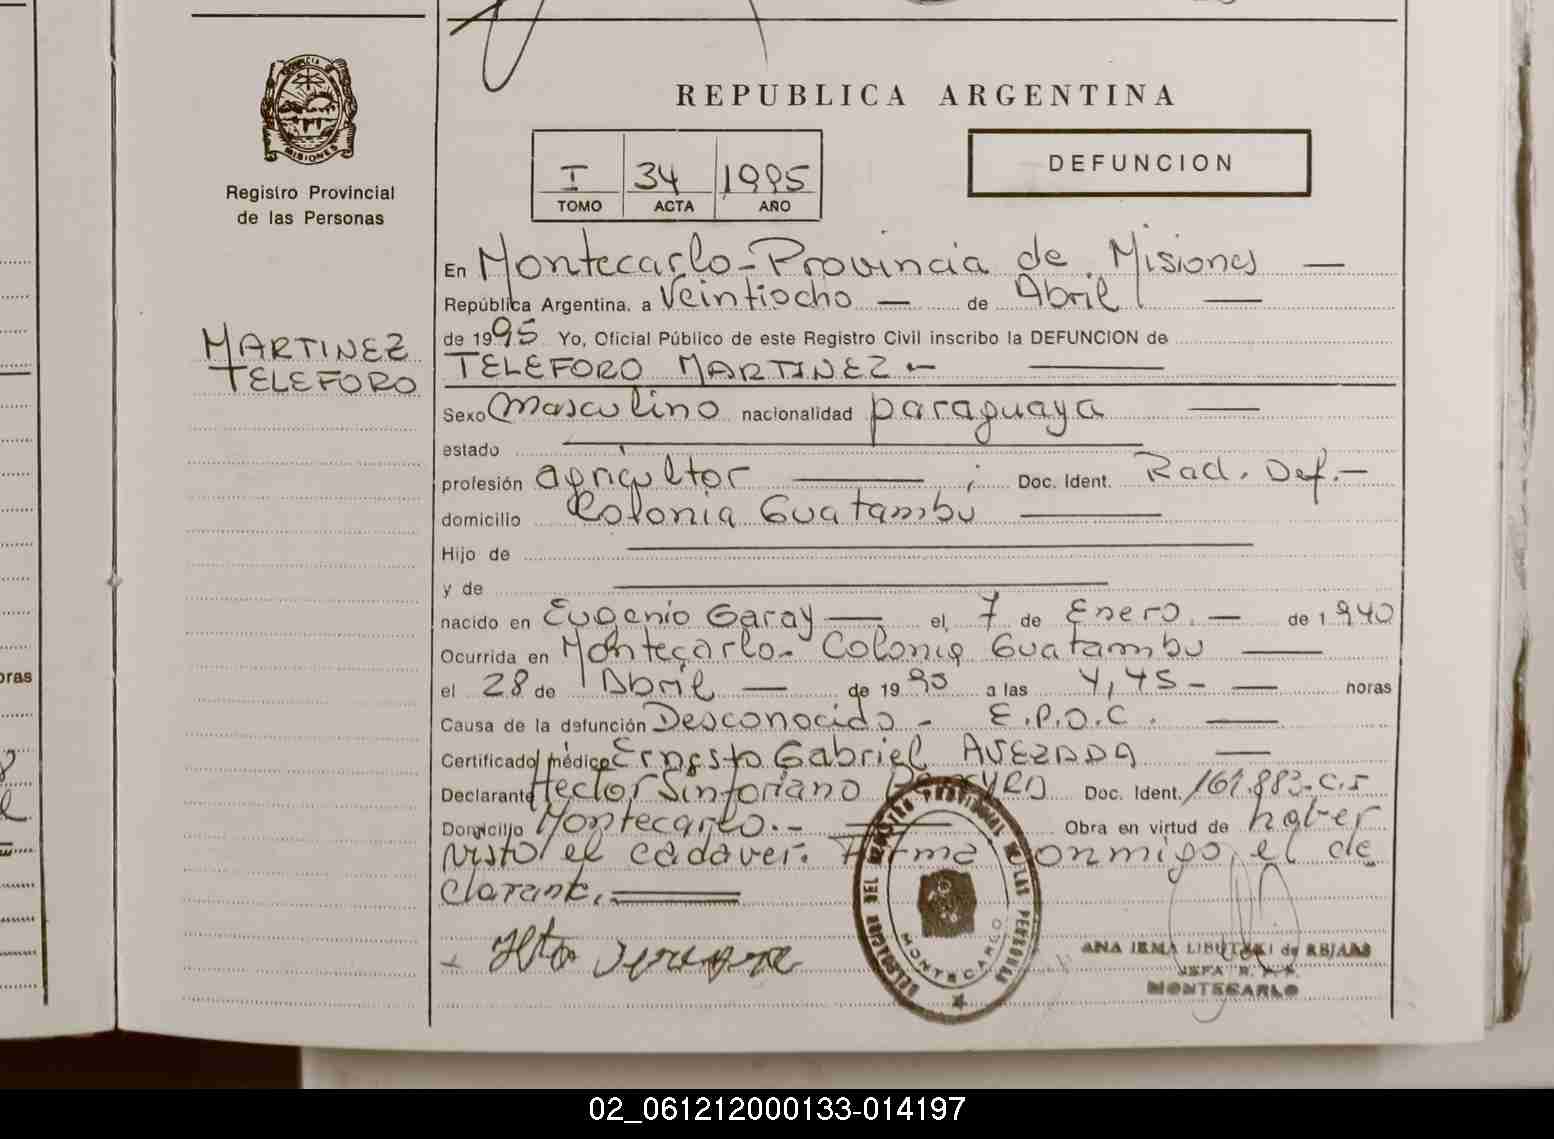 REPUBLICA ARGENTINA
PROVINCIA DE
MISIONES
Registro Provincial
de las Personas
I 34 1995
TOMO ACTA AÑO
DEFUNCION
En Montecarlo - Provincia de Misiones —
República Argentina, a Veintiocho — de Abril —
de 1995 Yo, Oficial Público de este Registro Civil inscribo la DEFUNCION de
MARTINEZ
TELEFORO
TELEFORO MARTINEZ.-
Sexo Masculino nacionalidad paraguaya —
estado
profesión agricultor — ; Doc. Ident. Rad. Def.-
domicilio Colonia Guatambu —
Hijo de
y de
nacido en Eugenio Garay — el, 7 de Enero. — de 1.940
Ocurrida en Montecarlo- Colonia Guatambu —
el 28 de Abril — de 1995 a las 4,45- — horas
Causa de la defunción Desconocido - E.P.O.C. —
Certificado médico Ernesto Gabriel AVEZADA —
Declarante Hector Sinforiano Doc. Ident.
Domicilio Montecarlo.- — Obra en virtud de haber
visto el cadaver. Firma conmigo, el de
clarante.
DELEGACION DEL REGISTRO PROVINCIAL DE LAS PERSONAS
MONTECARLO
ANA IRMA de
JEFA R.
MONTECARLO
02_061212000133-014197